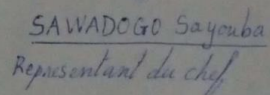 SAWADOGO Sayouba
Representant du chef